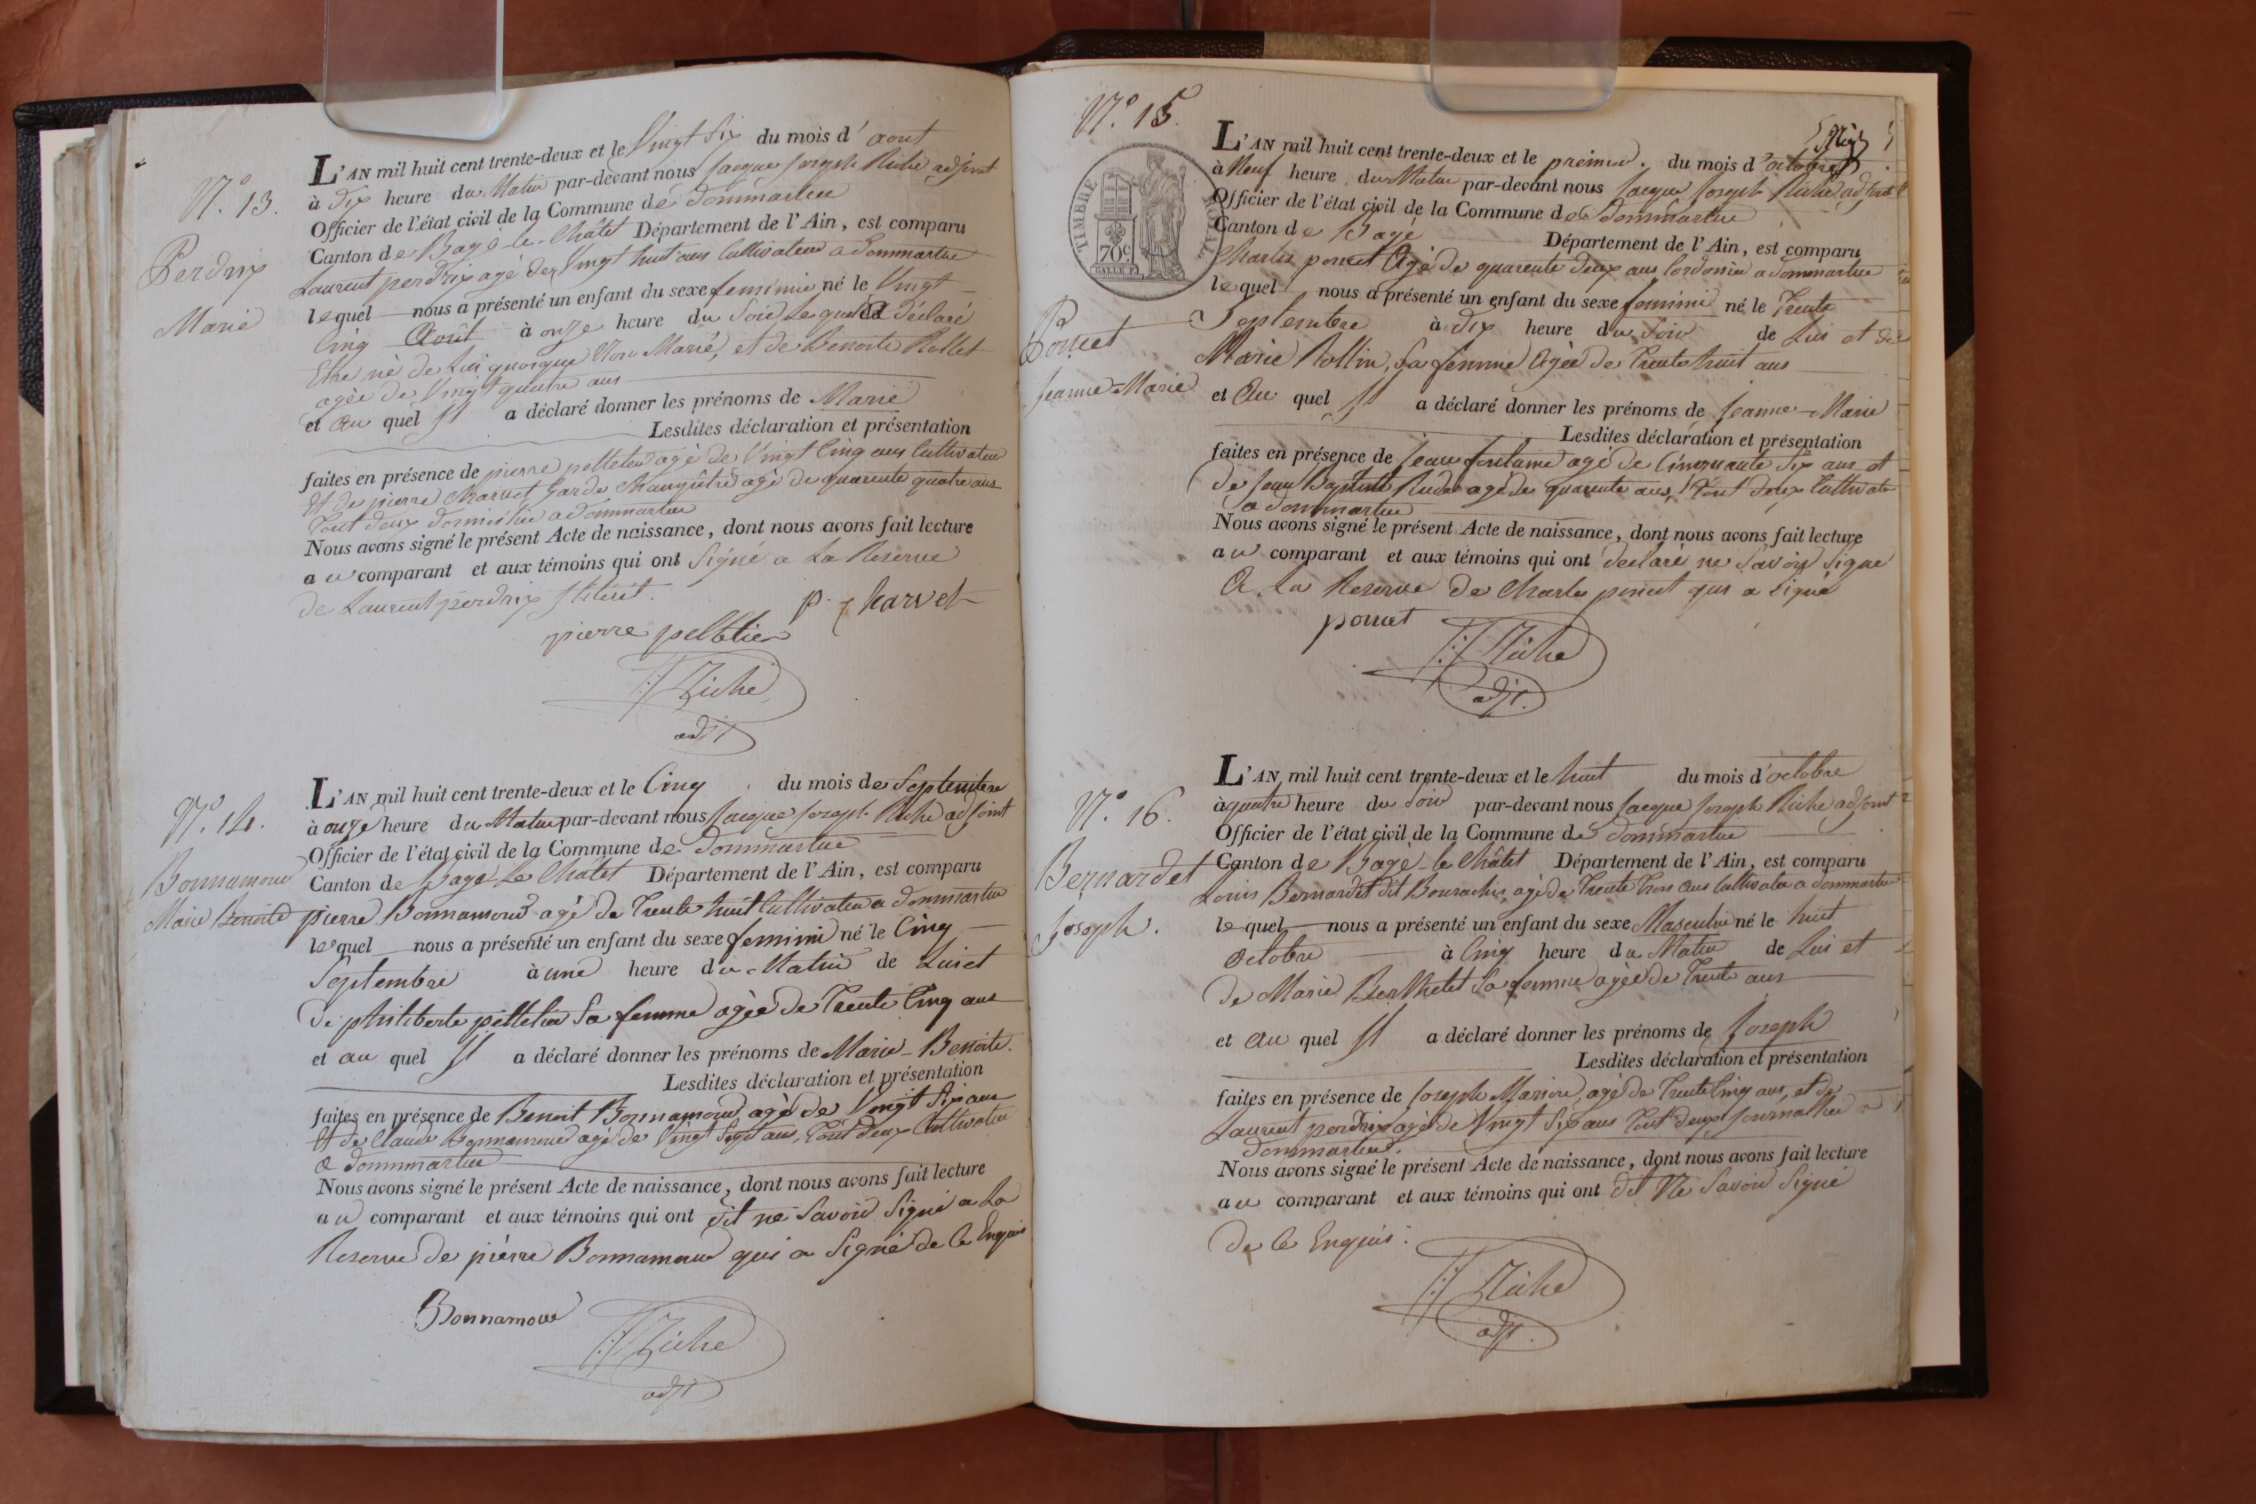 N.° 13.
Perdrix
Marie
L'AN mil huit cent trente-deux et le Vingt Six du mois d' aout
à Dix heure du Matin par-devant nous Jacque Joseph Riche adjoint
Officier de l'état civil de la Commune de Dommartin
Canton de Bagé-le-Châtel Département de l'Ain, est comparu
Laurent perdrix agé de Vingt huit ans Cultivateur a Dommartin
lequel nous a présenté un enfant du sexe feminin né le Vingt
Cinq Aout à onze heure du Soir Le quel a Déclaré
Etre né de Lui quoique Non Marié, et de Benoite Rollet
agée de Vingt quatre ans
et au quel Il a déclaré donner les prénoms de Marie
Lesdites déclaration et présentation
faites en présence de pierre pelletier agé de Vingt Cinq ans Cultivateur
Et de pierre Charvet Garde Champêtre agé de quarente quatre ans
Tout deux domicilié a dommartin
Nous avons signé le présent Acte de naissance, dont nous avons fait lecture
au comparant et aux témoins qui ont Signé a La Reserve
de Laurent perdrix Illiteré.
p. Charvet
pierre pelletier
JJ Riche
adjt
N.° 14.
Bonnamour
Marie Benoite
L'AN mil huit cent trente-deux et le Cinq du mois de Septembre
à onze heure du Matin par-devant nous Jacque Joseph Riche adjoint
Officier de l'état civil de la Commune de Dommartin
Canton de Bagé le Châtel Département de l'Ain, est comparu
pierre Bonnamour agé de Trente huit Cultivateur a dommartin
lequel nous a présenté un enfant du sexe feminin né le Cinq
Septembre à une heure du Matin de Lui et
De philiberte pelletier Sa femme agée de Trente Cinq ans
et au quel Il a déclaré donner les prénoms de Marie-Benoite.
Lesdites déclaration et présentation
faites en présence de Benoit Bonnamour agé de Vingt Six ans
Et de Claude Bonnamour agé de Vingt Sept ans, Tout deux Cultivateur
a Dommartin
Nous avons signé le présent Acte de naissance, dont nous avons fait lecture
au comparant et aux témoins qui ont dit ne Savoir Signé a La
Reserve de pierre Bonnamour qui a Signé de ce Enquis
Bonnamour
JJ Riche
adjt
N.° 15.
TIMBRE ROYAL
70c
Poncet
Jeanne-Marie
L'AN mil huit cent trente-deux et le premier. du mois d'octobre
à Neuf heure du Matin par-devant nous Jacque Joseph Riche adjoint
Officier de l'état civil de la Commune de Dommartin
Canton de Bagé Département de l'Ain, est comparu
Charles poncet Agé de quarente deux ans Cordonnier a dommartin
lequel nous a présenté un enfant du sexe feminin né le Trente
Septembre à Dix heure du Soir de Lui et de
Marie Rollin, Sa femme Agée de Trente huit ans
et Au quel Il a déclaré donner les prénoms de Jeanne-Marie
Lesdites déclaration et présentation
faites en présence de Jean fontaine agé de Cinquante Six ans et
De Jean Baptiste agé de quarente ans, Tout deux Cultivateur
a Dommartin
Nous avons signé le présent Acte de naissance, dont nous avons fait lecture
au comparant et aux témoins qui ont declaré ne Savoir Signe
A La Reserve De Charles poncet qui a Signé
poncet
JJ Riche
adjt.
N.° 16.
Bernardet
Joseph.
L'AN mil huit cent trente-deux et le huit du mois d'octobre
à quatre heure du Soir par-devant nous Jacque Joseph Riche adjoint
Officier de l'état civil de la Commune de Dommartin
Canton de Bagé-le Châtel Département de l'Ain, est comparu
Louis Bernardet dit agé de Trente Trois ans Cultivateur a dommartin
lequel nous a présenté un enfant du sexe Masculin né le huit
Octobre à Cinq heure du Matin de Lui et
De Marie Berthelet Sa femme agée de Trente ans
et Au quel Il a déclaré donner les prénoms de Joseph
Lesdites déclaration et présentation
faites en présence de Joseph agé de Trente Cinq ans, et de
Laurent perdrix agé de Vingt Six ans Tout deux Journallier a
Dommartin.
Nous avons signé le présent Acte de naissance, dont nous avons fait lecture
au comparant et aux témoins qui ont dit Ne Savoir Signé
De ce Enquis.
JJ Riche
adjt.